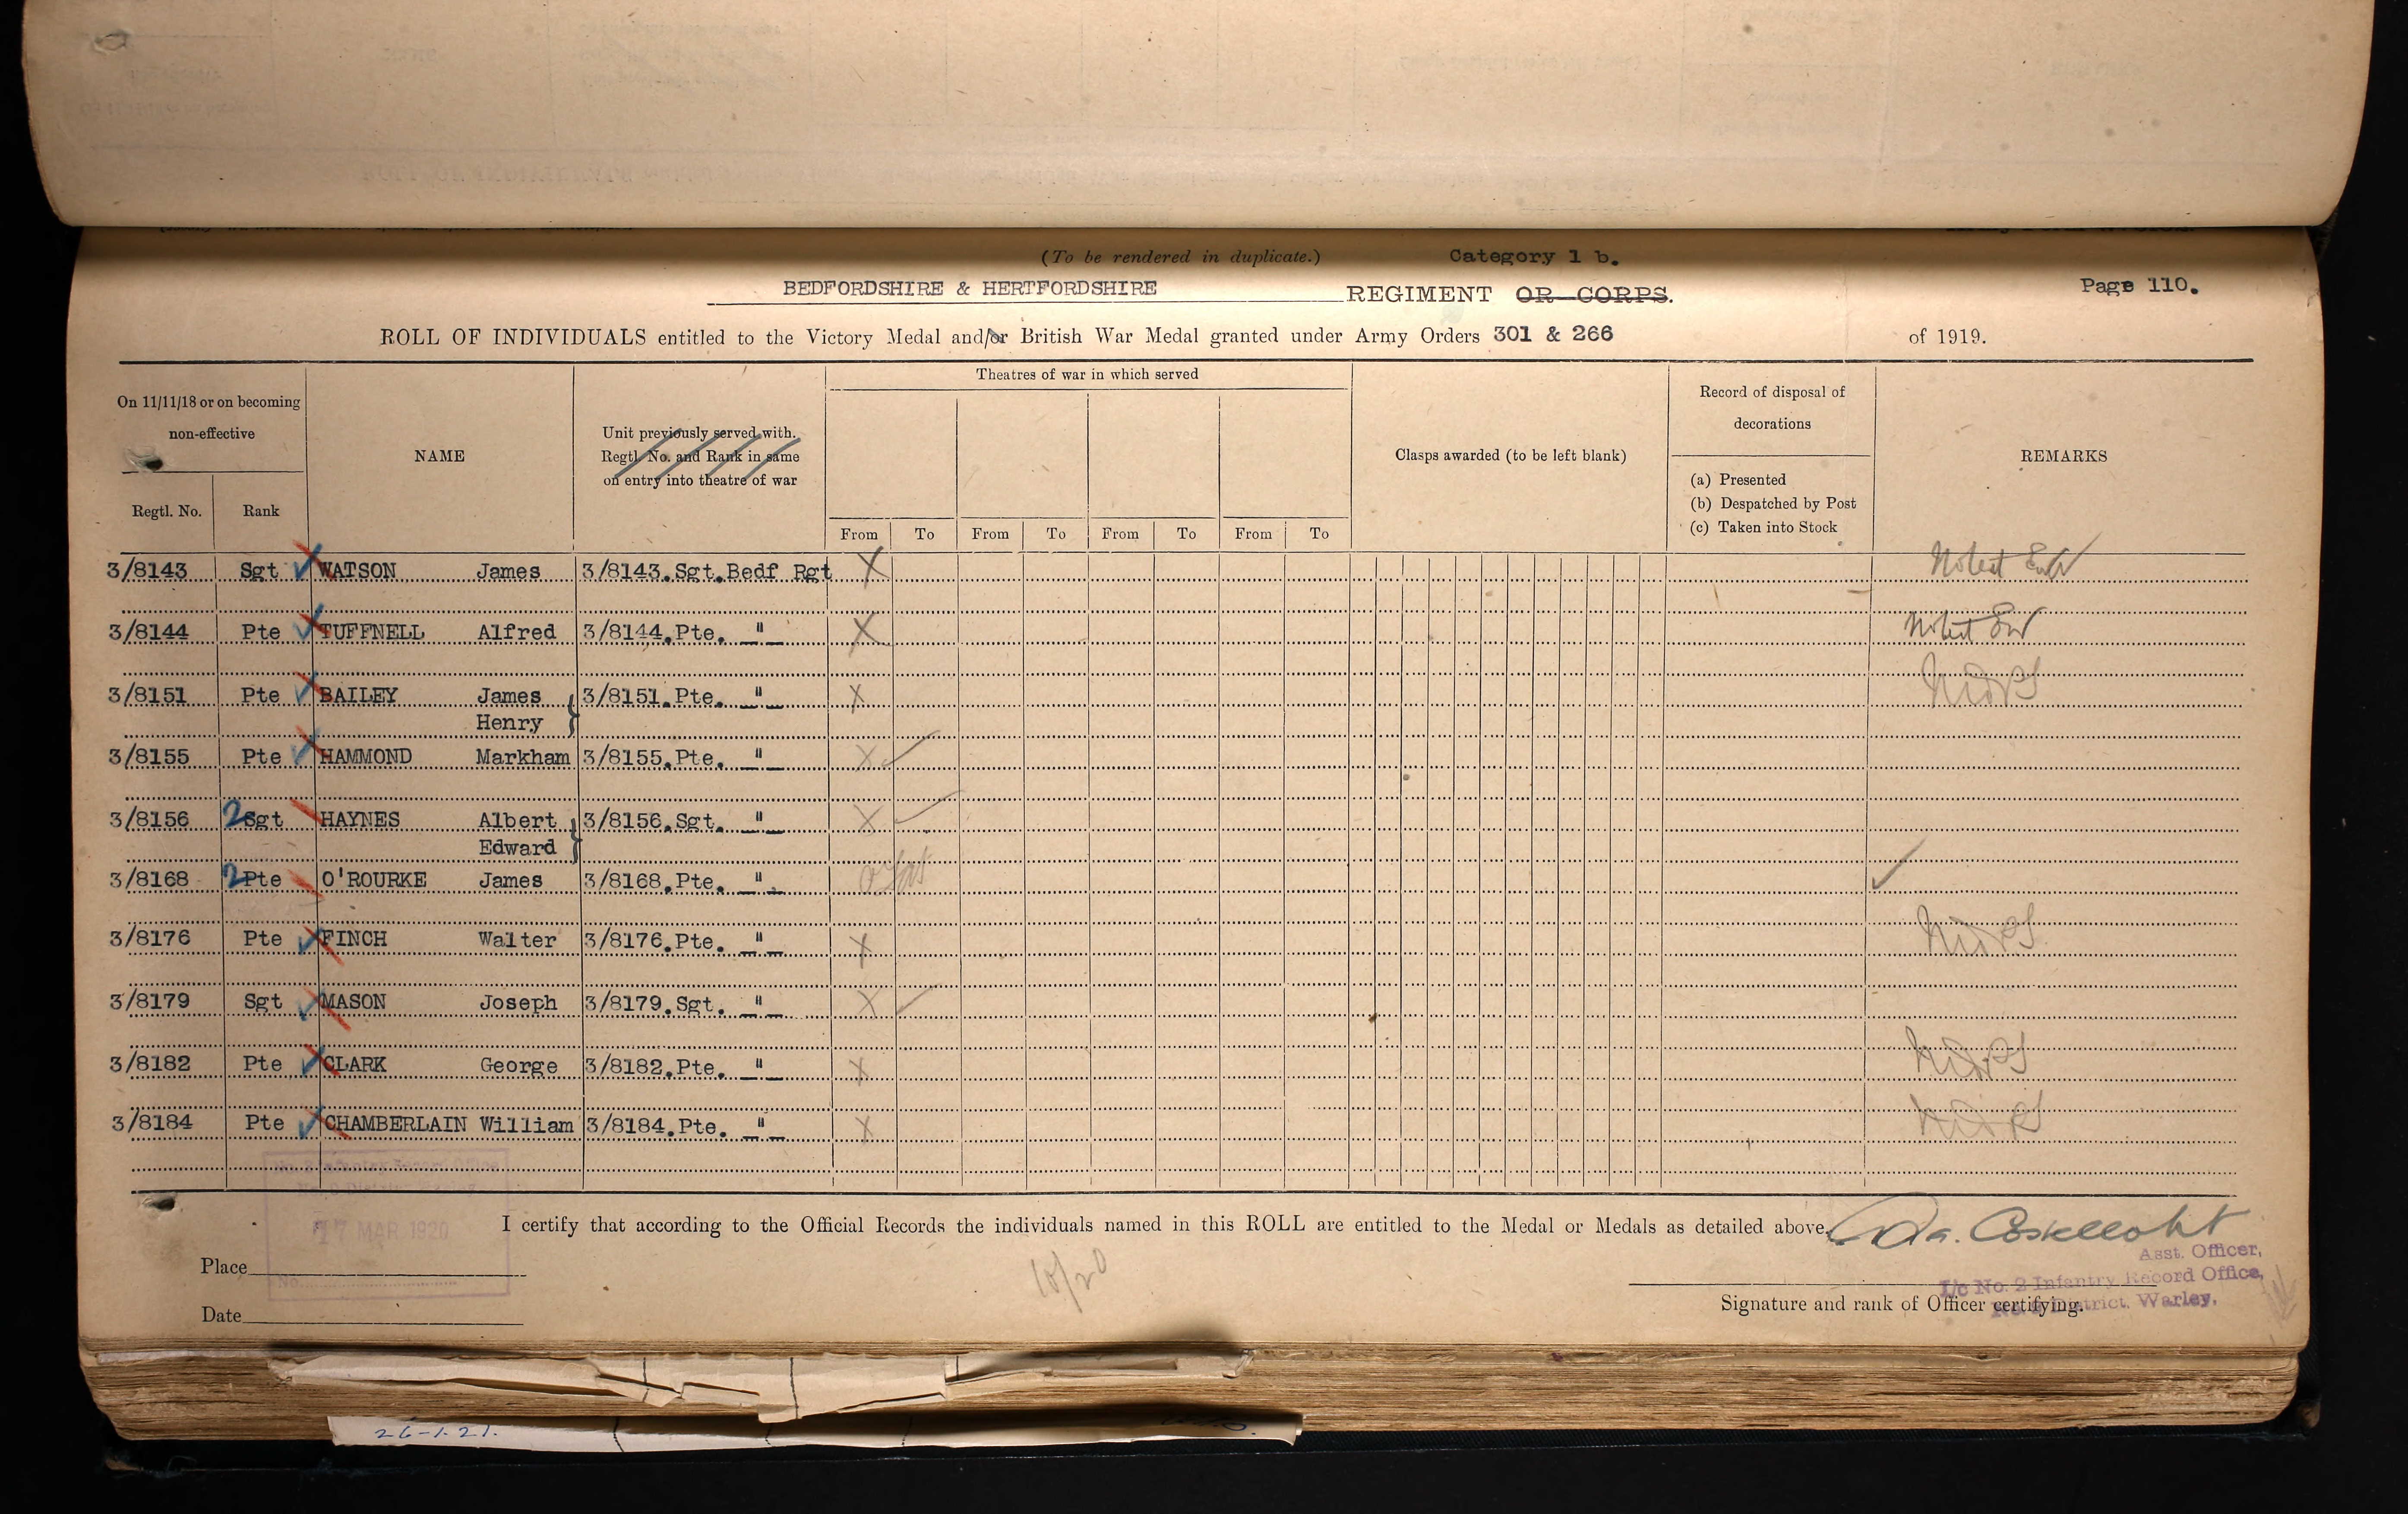 (To be rendered in duplicate.) Category 1 b.
BEDFORDSHIRE & HERTFORDSHIRE REGIMENT OR CORPS. Page 110.
ROLL OF INDIVIDUALS entitled to the Victory Medal and/or British War Medal granted under Army Orders 301 & 266 of 1919.
On 11/11/18 or on becoming non-effective
Regtl. No.
Rank
NAME
Unit previously served with.
Regtl. No. and Rank in same
on entry into theatre of war
Theatres of war in which served
From To From To From To From To
Clasps awarded (to be left blank)
Record of disposal of
decorations
(a) Presented
(b) Despatched by Post
(c) Taken into Stock
REMARKS
3/8143 Sgt WATSON James 3/8143.Sgt.Bedf Rgt X
3/8144 Pte TUFFNELL Alfred 3/8144.Pte. " X
3/8151 Pte BAILEY James 3/8151.Pte. " X
Henry
3/8155 Pte HAMMOND Markham 3/8155.Pte. " X
3/8156 2 Sgt HAYNES Albert 3/8156.Sgt. " X
Edward
3/8168 2 Pte O'ROURKE James 3/8168.Pte. "
3/8176 Pte FINCH Walter 3/8176.Pte. " X
3/8179 Sgt MASON Joseph 3/8179.Sgt. " X
3/8182 Pte CLARK George 3/8182.Pte. " X
3/8184 Pte CHAMBERLAIN William 3/8184.Pte. " X
17 MAR 1920
No.
I certify that according to the Official Records the individuals named in this ROLL are entitled to the Medal or Medals as detailed above.
Place
10/20
Asst. Officer,
I/c No. 2 Infantry Record Office,
District, Warley.
Date
Signature and rank of Officer certifying.
26-1.21.